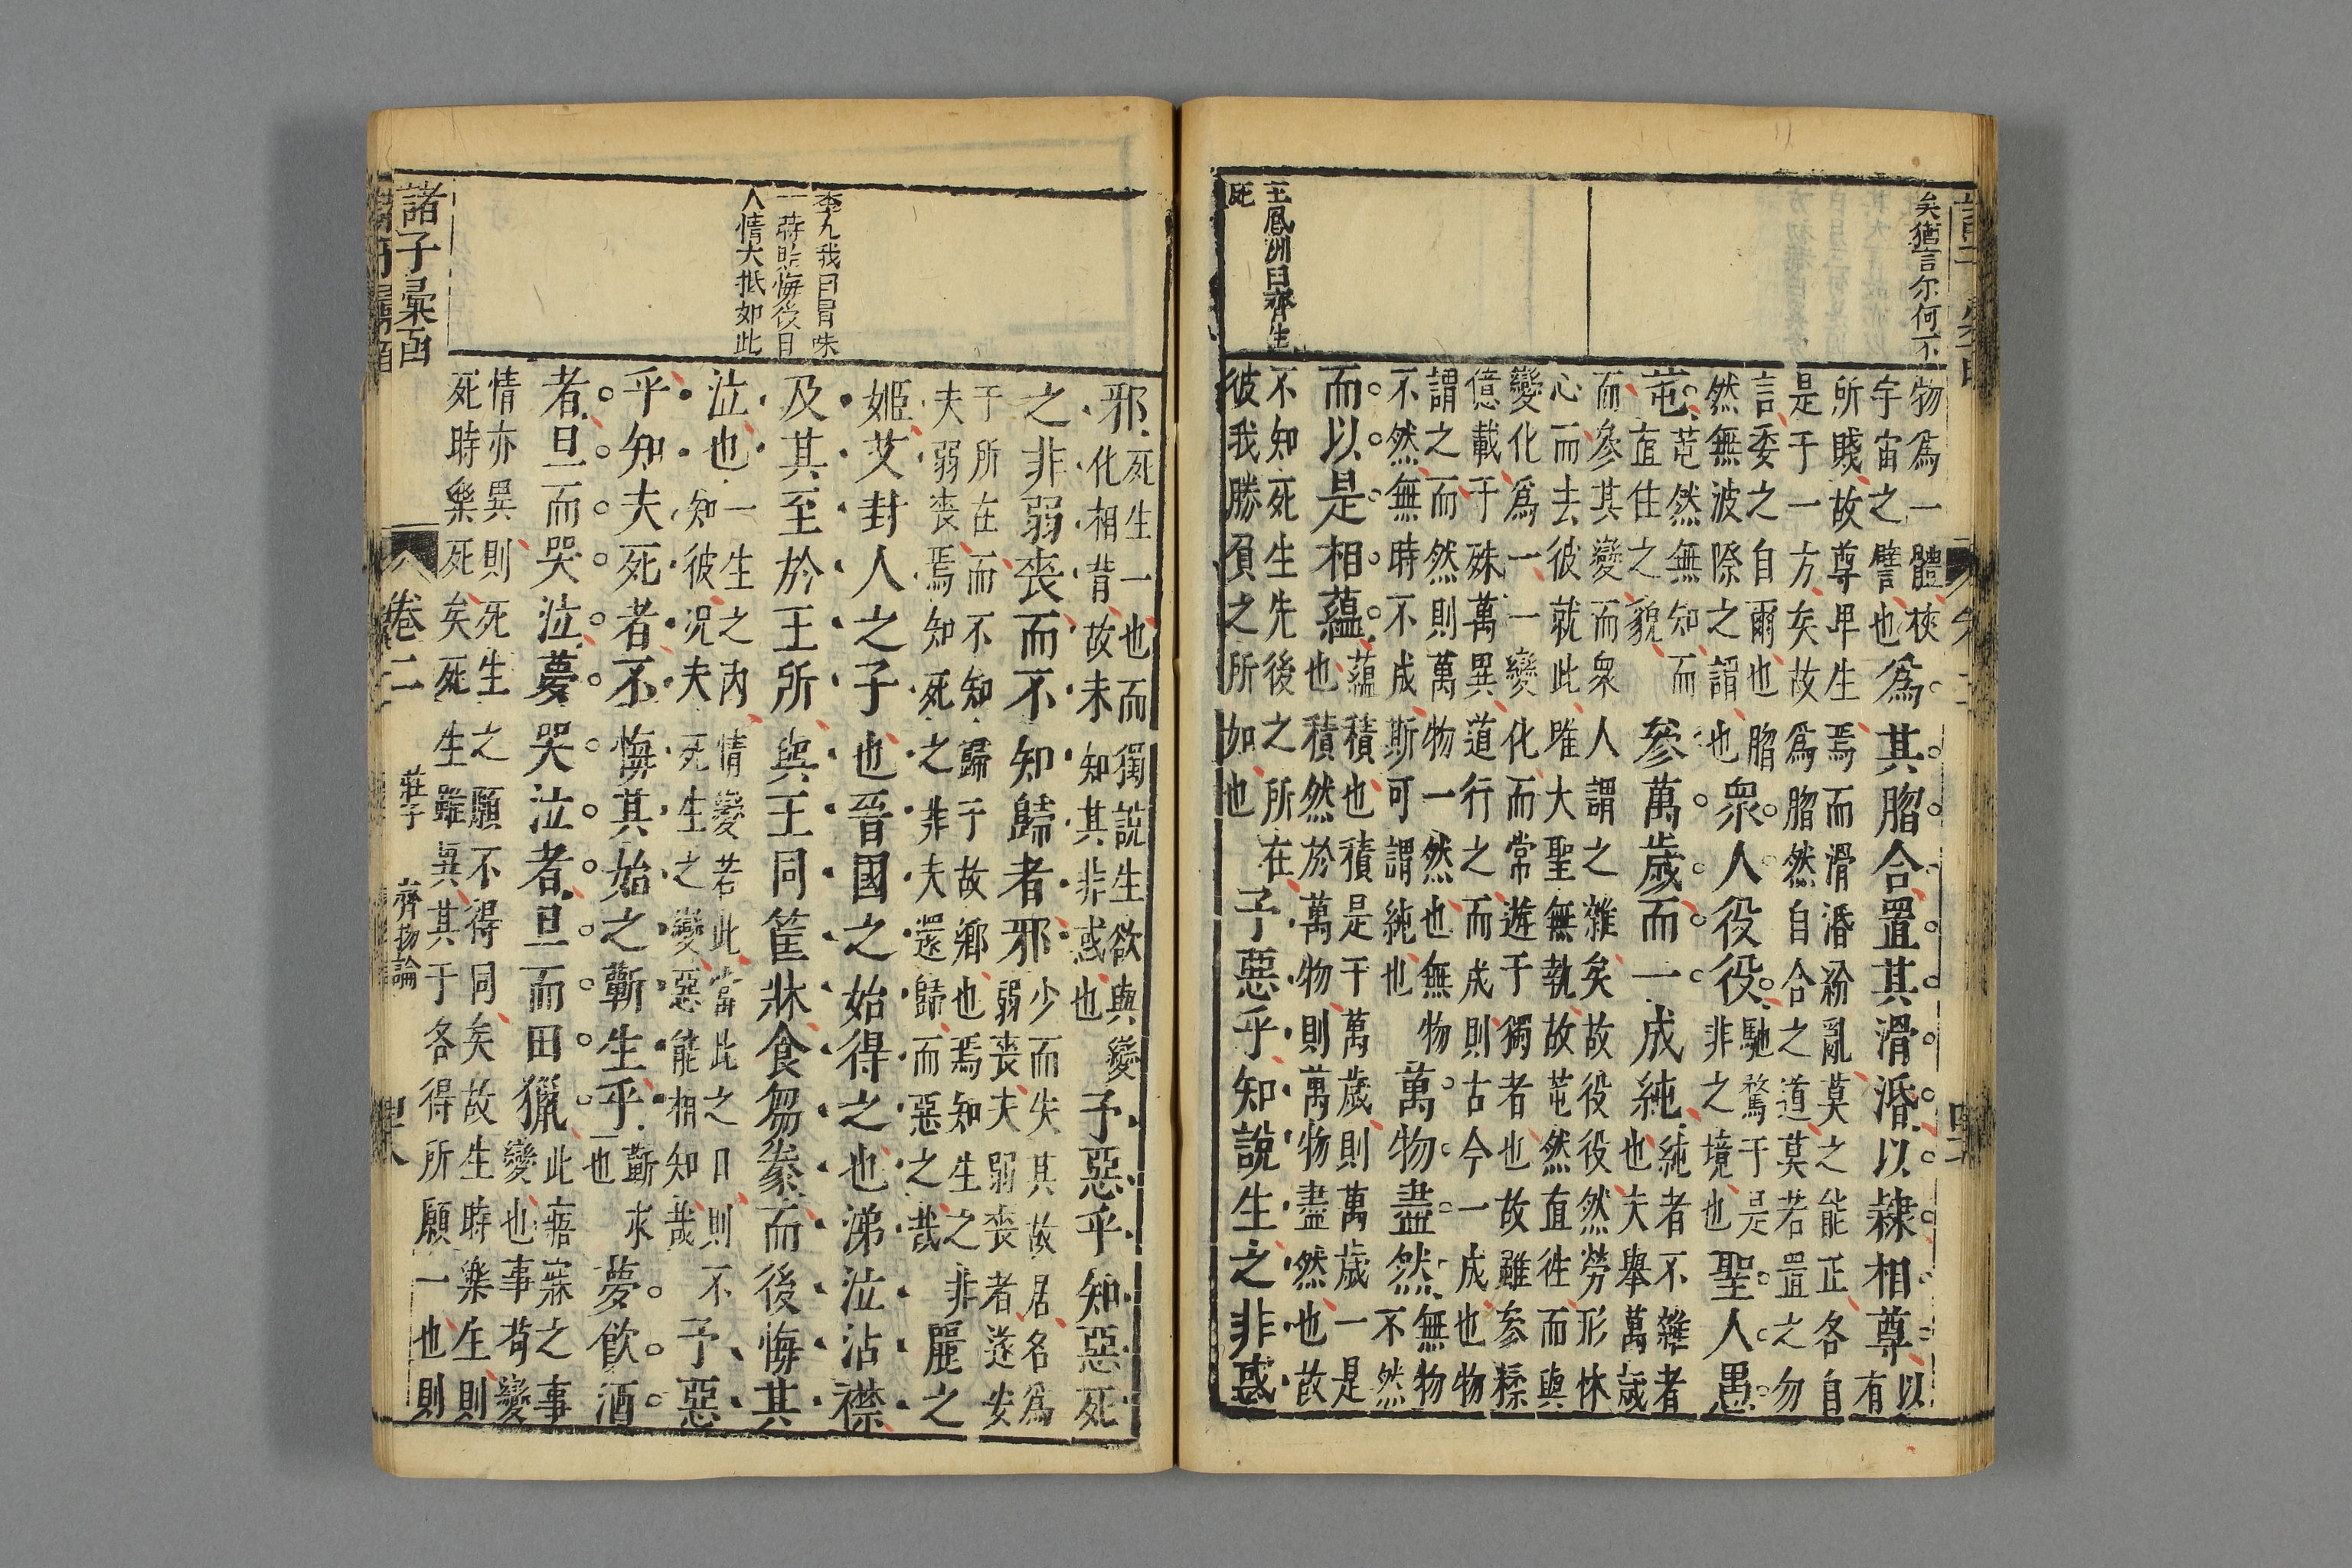 矣猶言尔何不
物爲一體挾
宇宙之譬也
爲其脗合置其滑湣以隸相尊
以
有
所賤故尊卑生焉而滑湣紛亂莫之能正各自
是于一方矣故爲脗然自合之道莫若置之勿
言委之自爾也脗
然無波際之謂也
眾人役役
馳騖于是
非之境也
聖人愚
芚
芚然無知而
直往之貌
參萬歲而一成純
純者不雜者
也夫舉萬歲
而參其變而眾人謂之雜矣故役役然勞形怵
心而去彼就此唯大聖無執故芚然直徃而與
變化爲一一變化而常遊于獨者也故雖參糅
億載千殊萬異道行之而成則古今一成也物
謂之而然則萬物一然也無物
不然無時不成斯可謂純也
萬物盡然
無物
不然
而以是相蘊
蘊積也積是于萬歲則萬歲一是
也積然於萬物則萬物盡然也故
王鳳洲曰齊生
死
不知死生先後之所在
彼我勝負之所如也
予惡乎知說生之非惑
邪
死生一也而獨說生欲與變
化相背故未知其非惑也
予惡乎知惡死
之非弱喪而不知歸者邪
少而失其故居名爲
弱喪夫弱喪者遂安
于所在而不知歸于故鄉也焉知生之非
夫弱喪焉知死之非夫還歸而惡之哉
麗之
姬艾封人之子也晉國之始得之也涕泣沾襟
李九我曰冒昧
一蒔昨悔後日
人情大抵如此
及其至於王所與王同筐牀食芻豢而後悔其
泣也
一生之內情變若此當此之日則不
知彼况夫死生之變惡能相知哉
予惡
乎知夫死者不悔其始之蘄生乎
蘄求
也
夢飲酒
者旦而哭泣夢哭泣者旦而田獵
此寤寐之事
變也事苟變
情亦異則死生之願不得同矣故生時樂生則
死時樂死矣死生雖異其于各得所願一也則
諸子彙函
卷二
莊子
齊物論